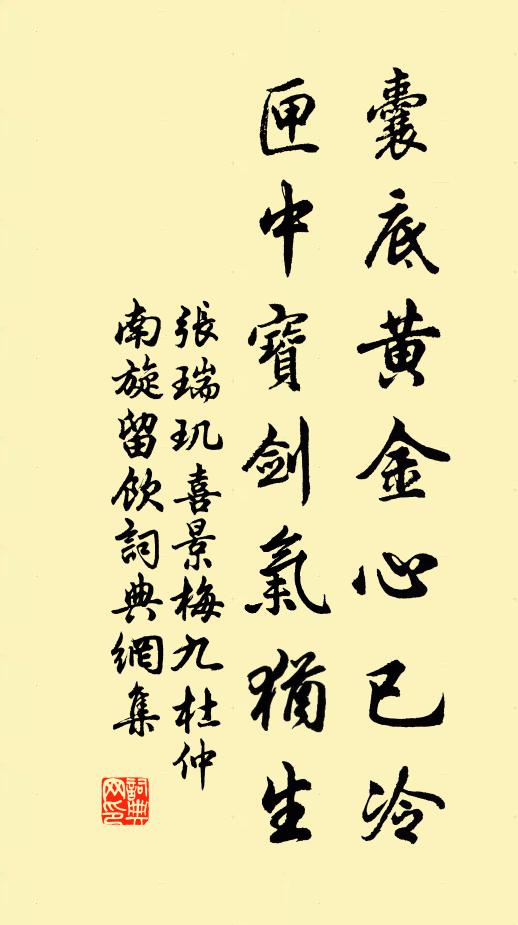 囊底黄金心已冷
匣中寶劍氣猶生
張瑞玑喜景梅九杜仲
南旋留飲詞典網集
詞典
网印